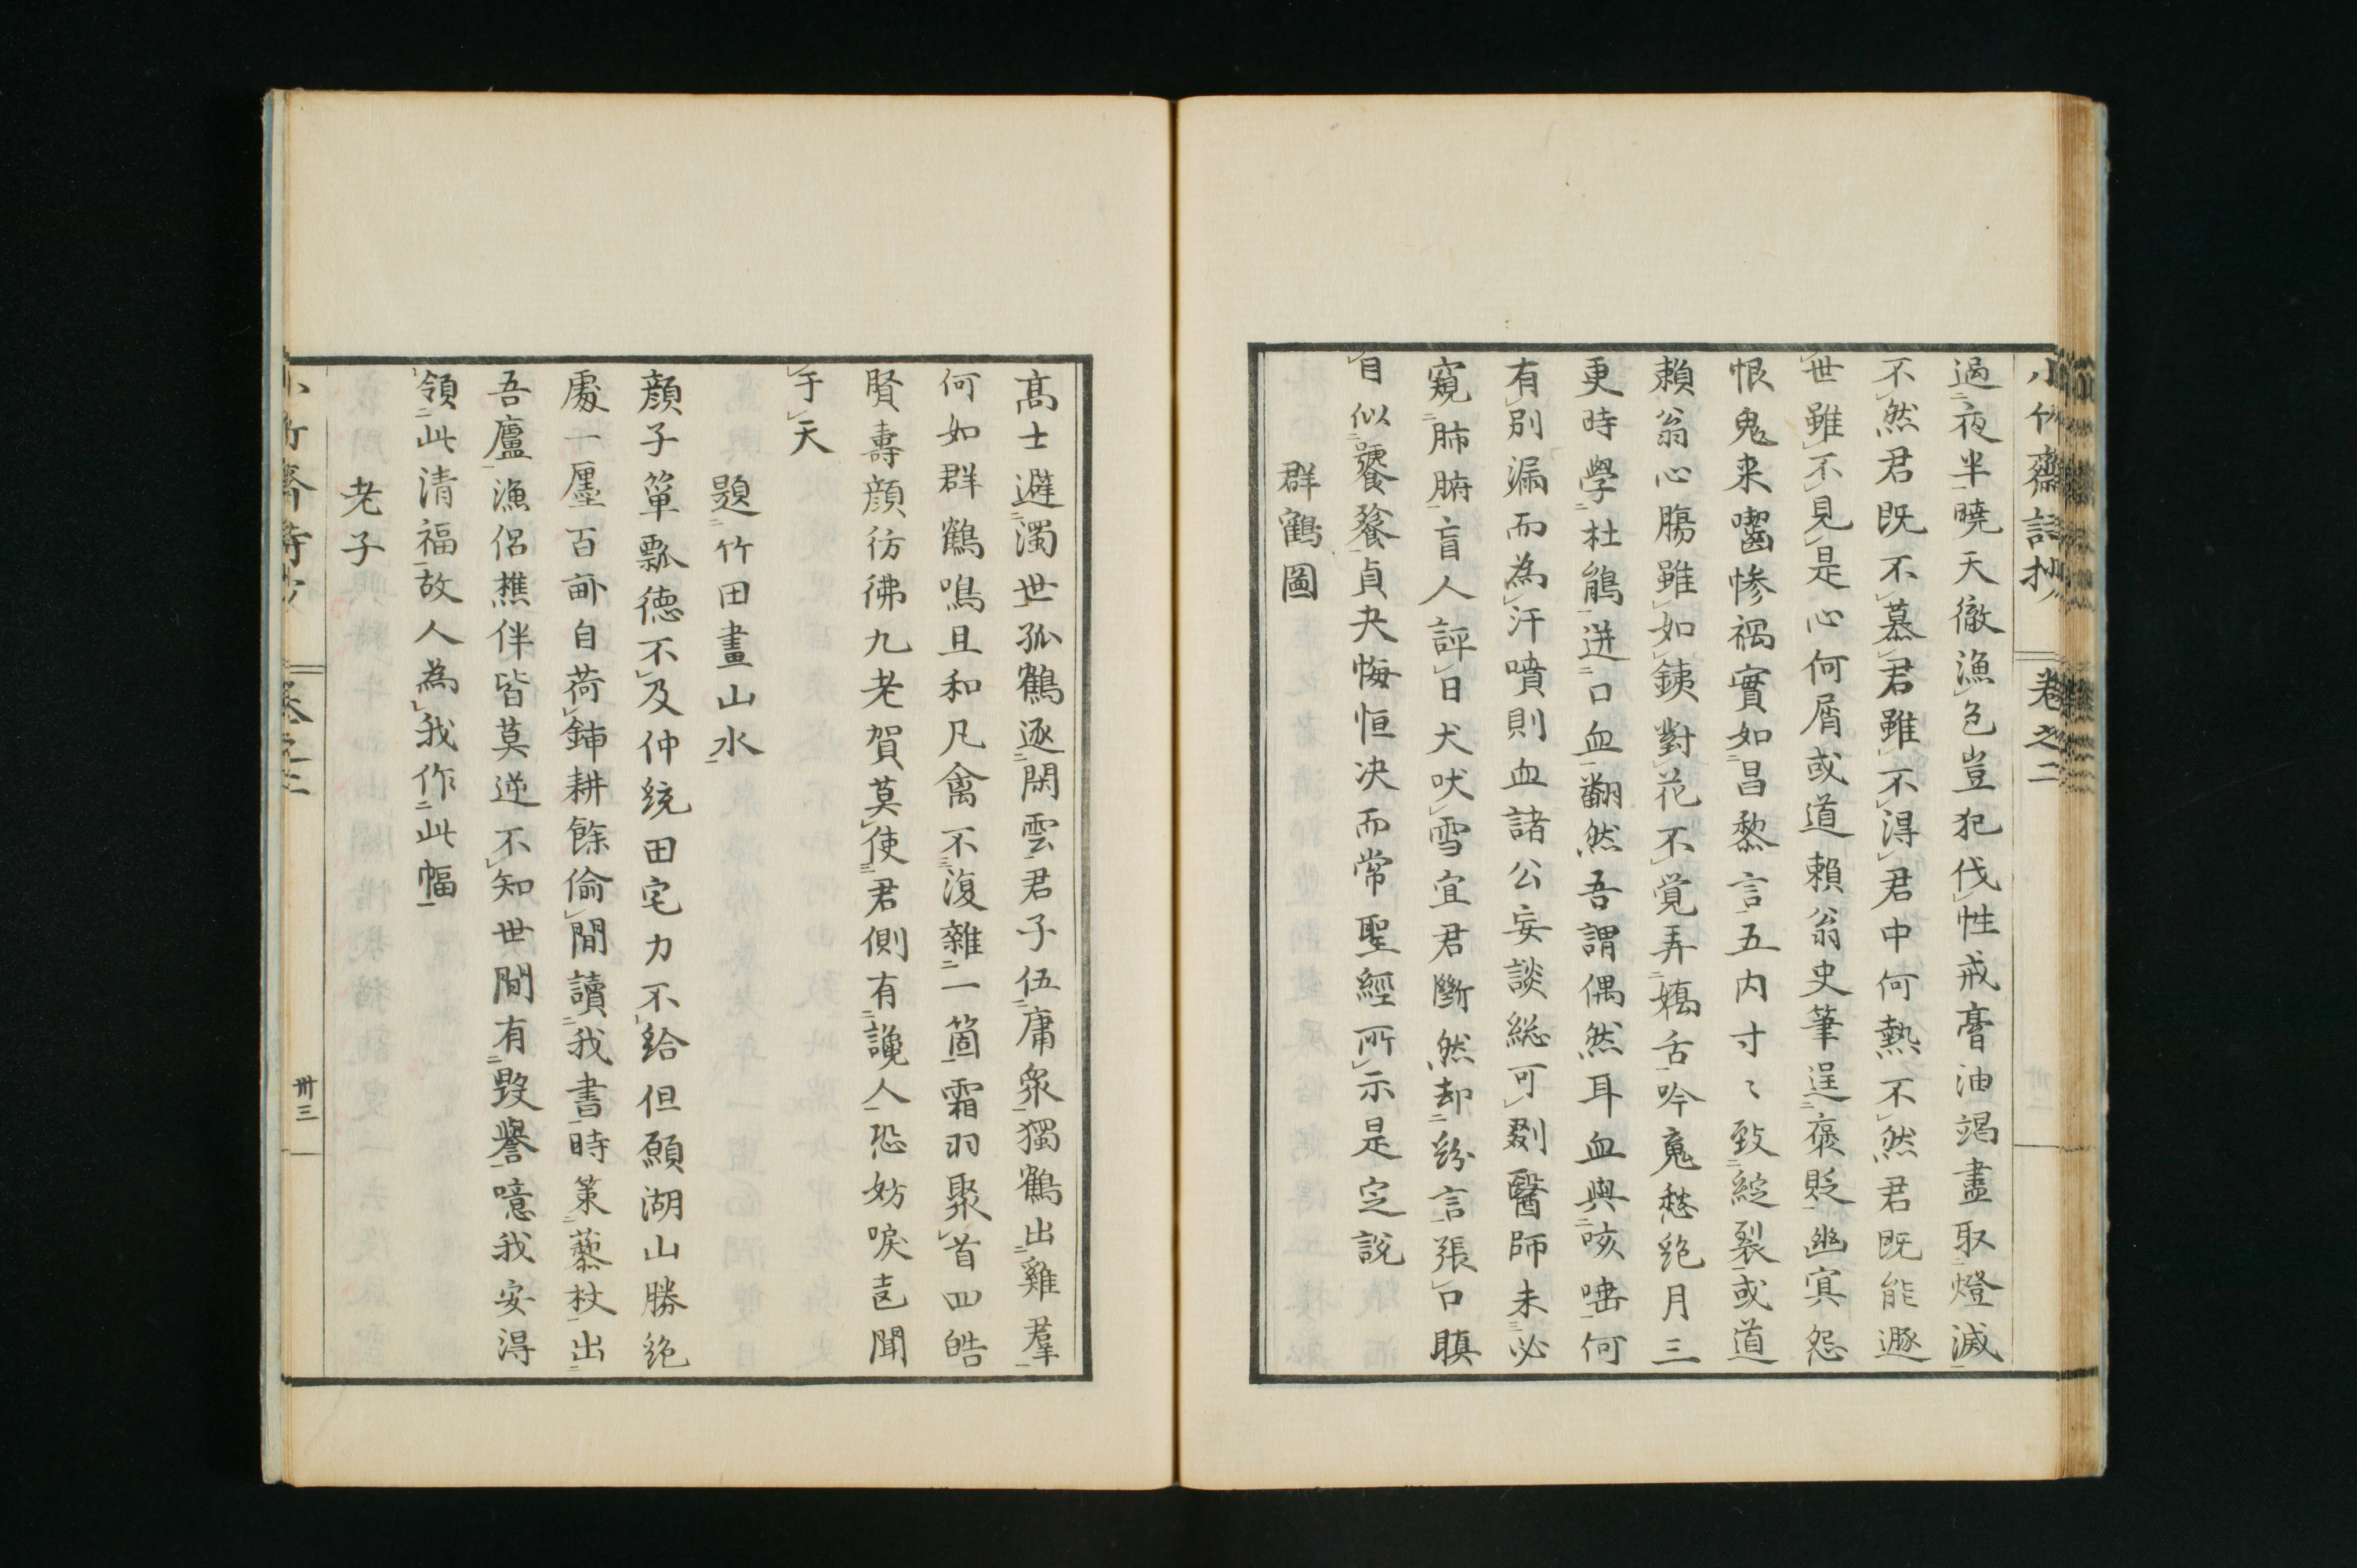 小竹齋詩抄 卷之二
過夜半曉天徹漁色豈犯伐性戒膏油竭盡取燈滅
不然君既不慕君雖不得君中何熱不然君既能遯
世雖不見是心何屑或道賴翁史筆逞褒貶幽冥怨
恨鬼来囓惨禍實如昌黎言五内寸〻致綻裂或道
賴翁心腸雖如銕對花不覚弄嬌舌吟寬愁絶月三
更時學杜鵑迸口血翻然吾謂偶然耳血與咳嗤何
有別漏而為汗噴則血諸公妄談総可剟醫師未必
窺肺腑盲人評日犬吠雪宜君斷然却紛言張口瞋
目似饕餮貞夬悔恒決而常聖經所示是定説
群鶴圖
高士避濁世孤鶴逐閑雲君子伍庸衆獨鶴出雞羣
何如群鶴鳴且和凡禽不復雜一箇霜羽聚首四皓
賢壽顔彷彿九老賀莫使君側有讒人恐妨唳声聞
于天
題竹田畫山水
顔子箪瓢德不及仲統田宅力不給但願湖山勝絶
處一廛百畝自荷鍤耕餘偷閒讀我書時策藜杖出
吾廬漁侶樵伴皆莫逆不知世間有毀譽噫我安得
領此清福故人為我作此幅
老子
卷之二
卅三